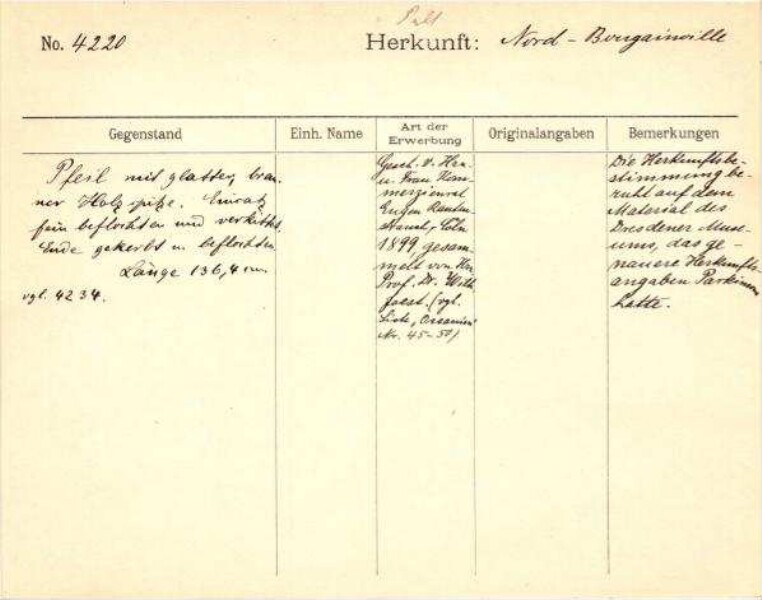 No. 4220
Herkunft: Nord-Bougainville
Gegenstand
Einh. Name
Art der Erwerbung
Originalangaben
Bemerkungen
Pfeil mit glatter, brau-
ner Holzspitze. Einsatz
fein beflochten und verkittet.
Ende gekerbt u. beflochten.
Länge 136,4 cm.
vgl. 4234.
Gesch. v. Hrn.
u. Frau Kom-
merzienrat
Eugen Rauten-
strauch, Cöln
1899, gesam-
melt von Hn.
Prof. Dr. Wilh.
Joest. (vgl.
Liste, Ozeanien
Nr. 45-50)
Die Herkunftsbe-
stimmung be-
ruht auf dem
Material des
Dresdener Muse-
ums, das ge-
nauere Herkunfts-
angaben Parkinsons
hatte.